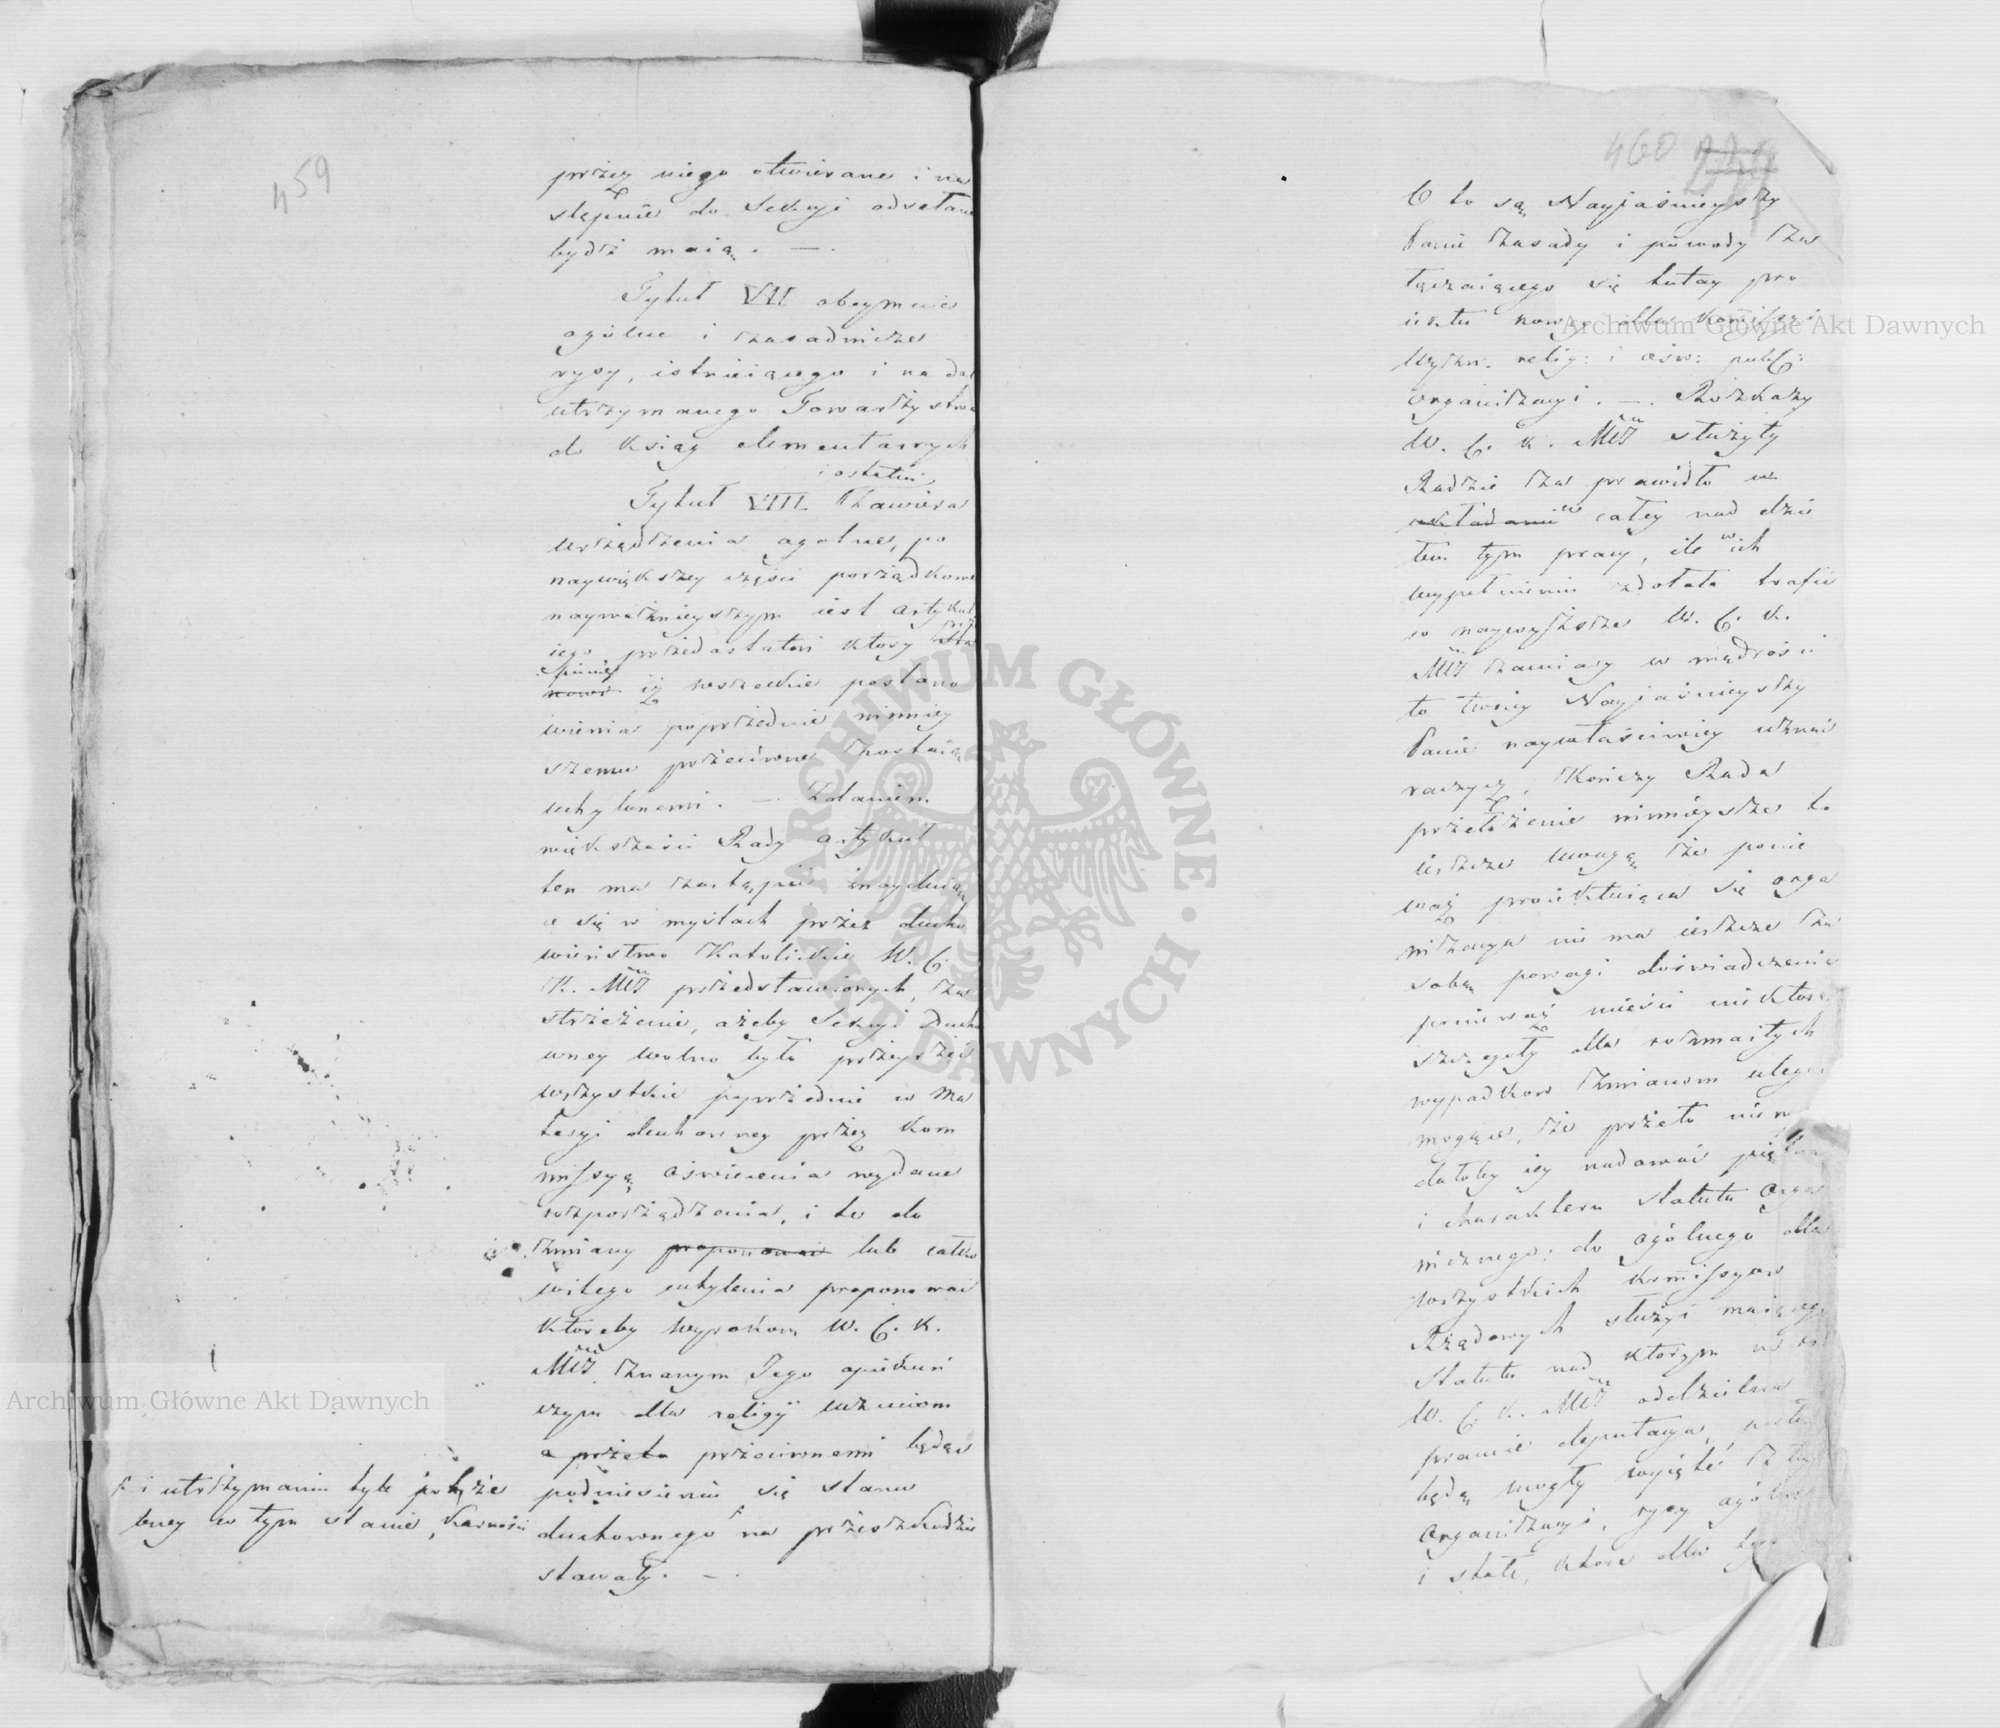 459
przez niego otwierane i na
stępnie do Sekcyi odsełane
bydź maią. —.
Tytuł VII obeymuie
ogólne i zasadnicze
rysy, istnieiącego i nadal
utrzymanego Towarzystwa
do Ksiąg elementarnych
i ostatni
Tytuł VIII zawiera
urządzenia ogolne, po
naywiększey części porządkowe
nayważnieyszym iest artykuł
iego przedostatni ktory
iż wszelkie postano
wienia poprzednie ninniey
szemu przeciwne zostaią
uchylonemi. —. Zdaniem
większości Rady artykuł
ten ma zastąpić znayduią
ce się w myślach przez ducho
wieństwo Katolickie W. C.
K. Mci przedstawionych, za
strzeżenie, ażeby Sekcyi Ducho
wney wolno było przeyrzeć
wszystkie poprzednie w ma
teryi duchowney przez Kom
missyą Oświecenia wydane
rozporządzenia, i te do
zmiany proponować lub całko
witego uchylenia proponować
ktoreby wyrokom W. C. K.
Mci znanym Jego opiekuń
czym dla religii uczuciom
a przeto przeciwnemi będąc
podniesieniu się stanu
duchownego na przeszkodzie
stawały. —.
i utrzymaniu tyle potrze
bney w tym stanie, karności
460
O to są Nayjaśnieyszy
Panie zasady i powody za
łączaiącego się tutay pro
iektu nowey dla Kommissyi
Wyzn. relig: i ośw: publ:
organizacyi. —. Rozkazy
W. C. K. Mci służyły
Radzie za prawidło w
układaniu w całey nad dzie
łem tym pracy, ile w ich
wypełnieniu zdołała trafić
w naywyższe W. C. K.
Mci zamiary w mądrości
to twoiey Nayjaśnieyszy
Panie naywłaściwiey uznać
raczysz, Kończy Rada
przełożenie ninnieysze to
ieszcze uwagą że ponie
waż proiektuiąca się orga
nizacya nie ma ieszcze za
sobą powagi doświadczenia
ponieważ mieści niektore
szczegoły dla rozmaitych
wypadkow zmianom uledz
mogące, że przeto nie
dałoby iey nadawać piętna
i charakteru Statutu Orga
nicznego; do ogólnego dla
wszystkich Kommissyow
Rządowych służyć maiącego
Statutu nad ktorym
W. C. K. Mci oddzielna
pracuie deputacya,
będą mogły wyięte z tey
Organizacyi, rysy ogólne
i stałe, ktore dla